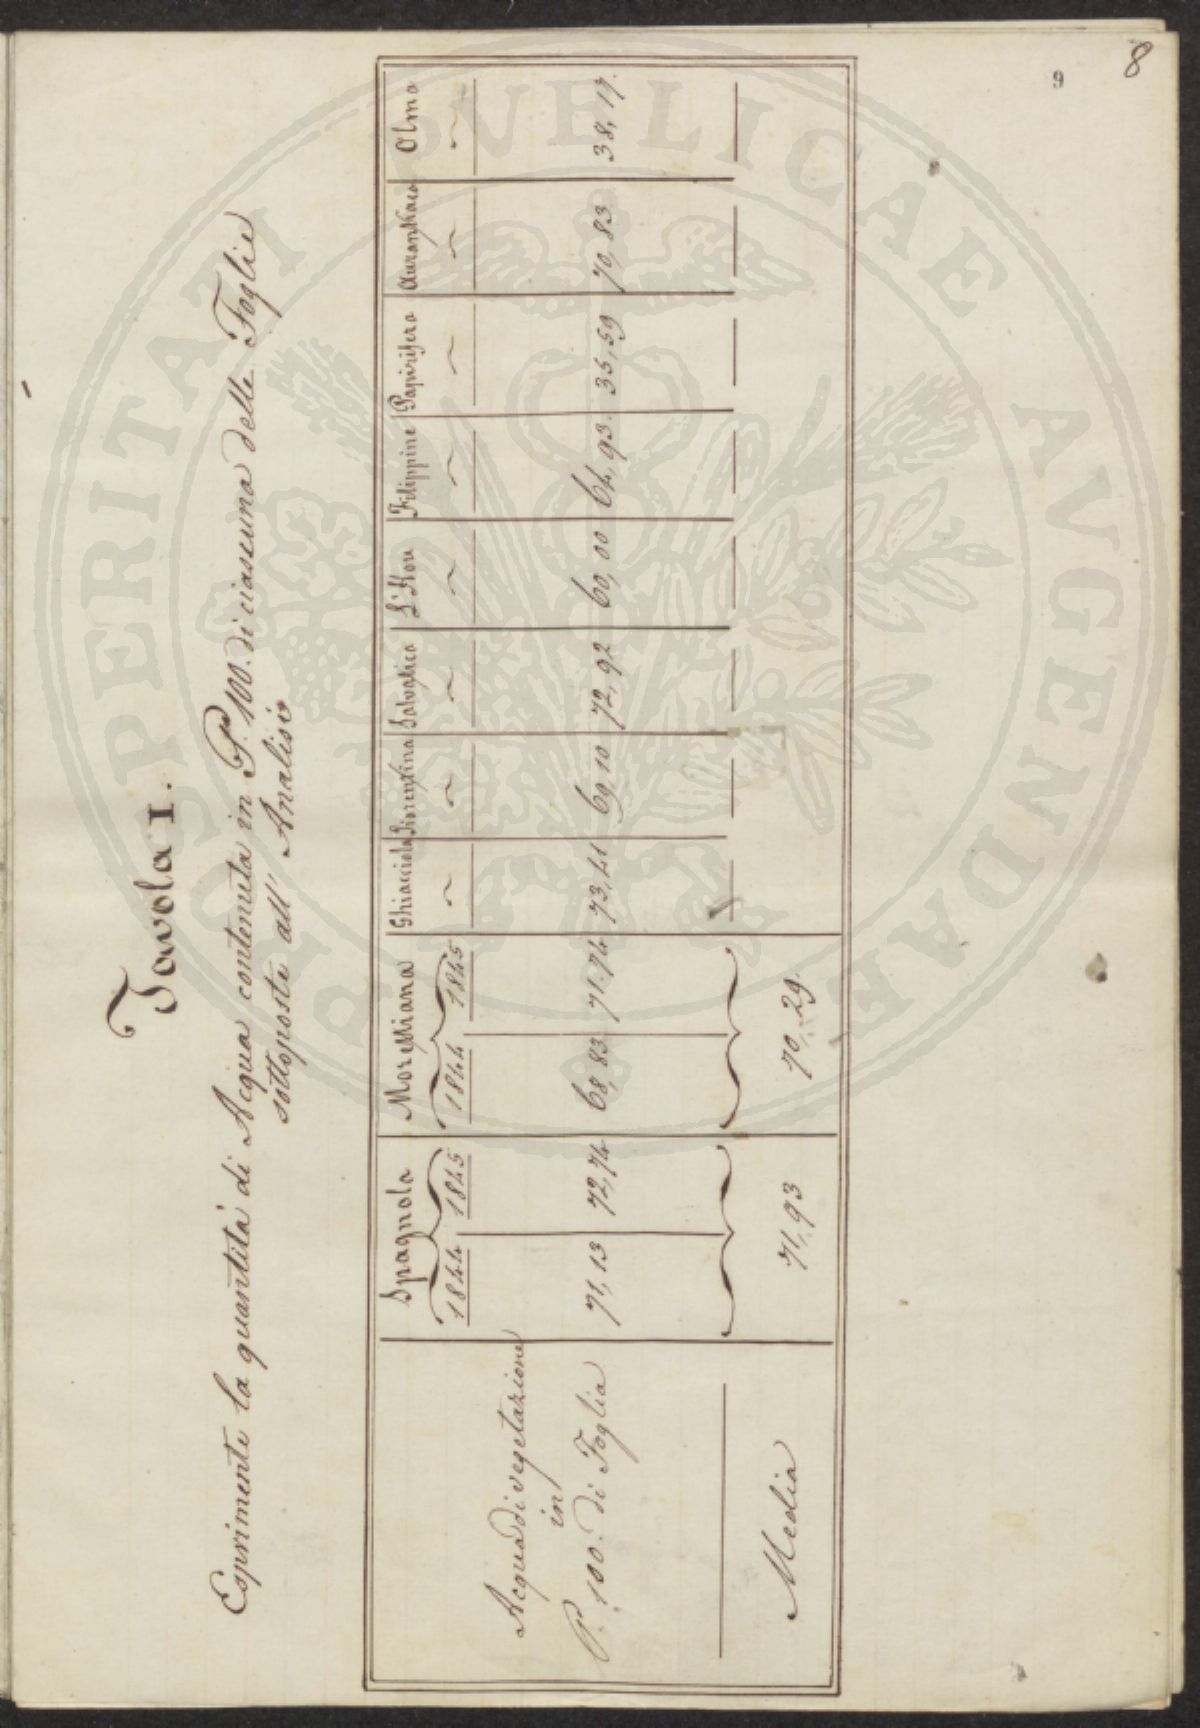 8
9
Tavola I.
Esprimente la quantità di Acqua contenuta in P. 100. di ciascuna delle Foglie
sottoposte all' Analisi
Spagnola Morettiana Ghiacciola Fiorentina Salvatico L'Hou Filippine Papirifera Aurantiaca Olmo
1844 1845 1844 1845
Acqua di vegetazione
in
P. 100. di Foglia
71,13 72,74 68,83 71,74 73,41 69,10 72,92 60,00 64,93. 35,59 70,83 38,17.
Media 71,93 70,29.
PROSPERITATI PVBLICAE AVGENDAE